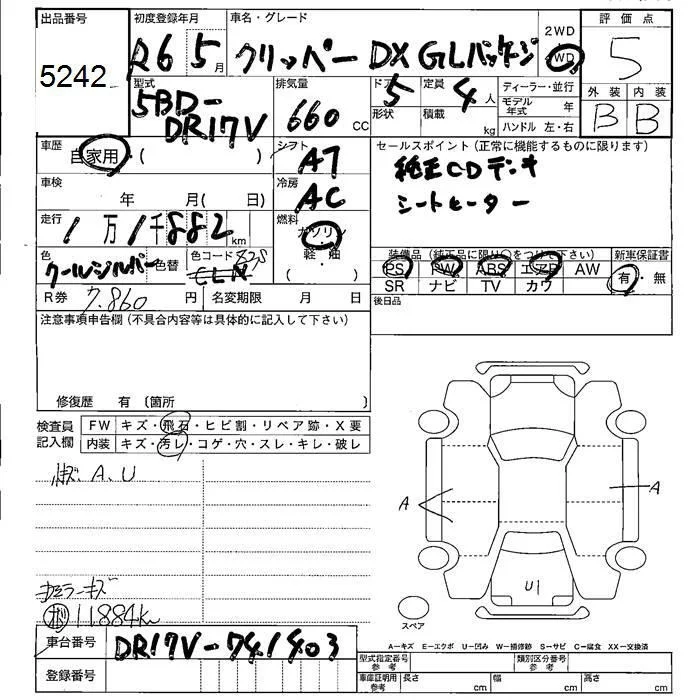 出品番号
5242
初度登録年月
R6 5月
車名・グレード
クリッパー DX GLパッケージ
2WD
4WD
評価点
5
外装 内装
B B
型式
5BD-
DR17V
排気量
660 cc
ドア 5
形状
定員 4人
積載 kg
ディーラー・並行
モデル年式 年
ハンドル 左・右
車歴
自家用・( )
シフト
AT
セールスポイント(正常に機能するものに限ります)
純正CDデッキ
シートヒーター
車検
年 月( 日)
冷房
AC
走行
1万1千882km
燃料
ガソリン
軽・油
色
クールシルバー
色替
色コード
R券 7.860円
名変期限 月 日
装備品(純正品に限り○をつけ下さい)
PS PW ABS エアB AW
SR ナビ TV カワ
新車保証書
有・無
後日品
注意事項申告欄(不具合内容等は具体的に記入して下さい)
修復歴 有〔箇所 〕
検査員
記入欄
FW キズ・飛石・ヒビ割・リペア跡・X要
内装 キズ・汚レ・コゲ・穴・スレ・キレ・破レ
A.U
ミラーキズ
11884km
A
A
U1
スペア
A-キズ E-エクボ U-凹み W-補修跡 S-サビ C-腐食 XX-交換済
車台番号
DR17V-741403
登録番号
型式指定番号
参考
類別区分番号
参考
車庫証明用
参考
長さ cm
幅 cm
高さ cm